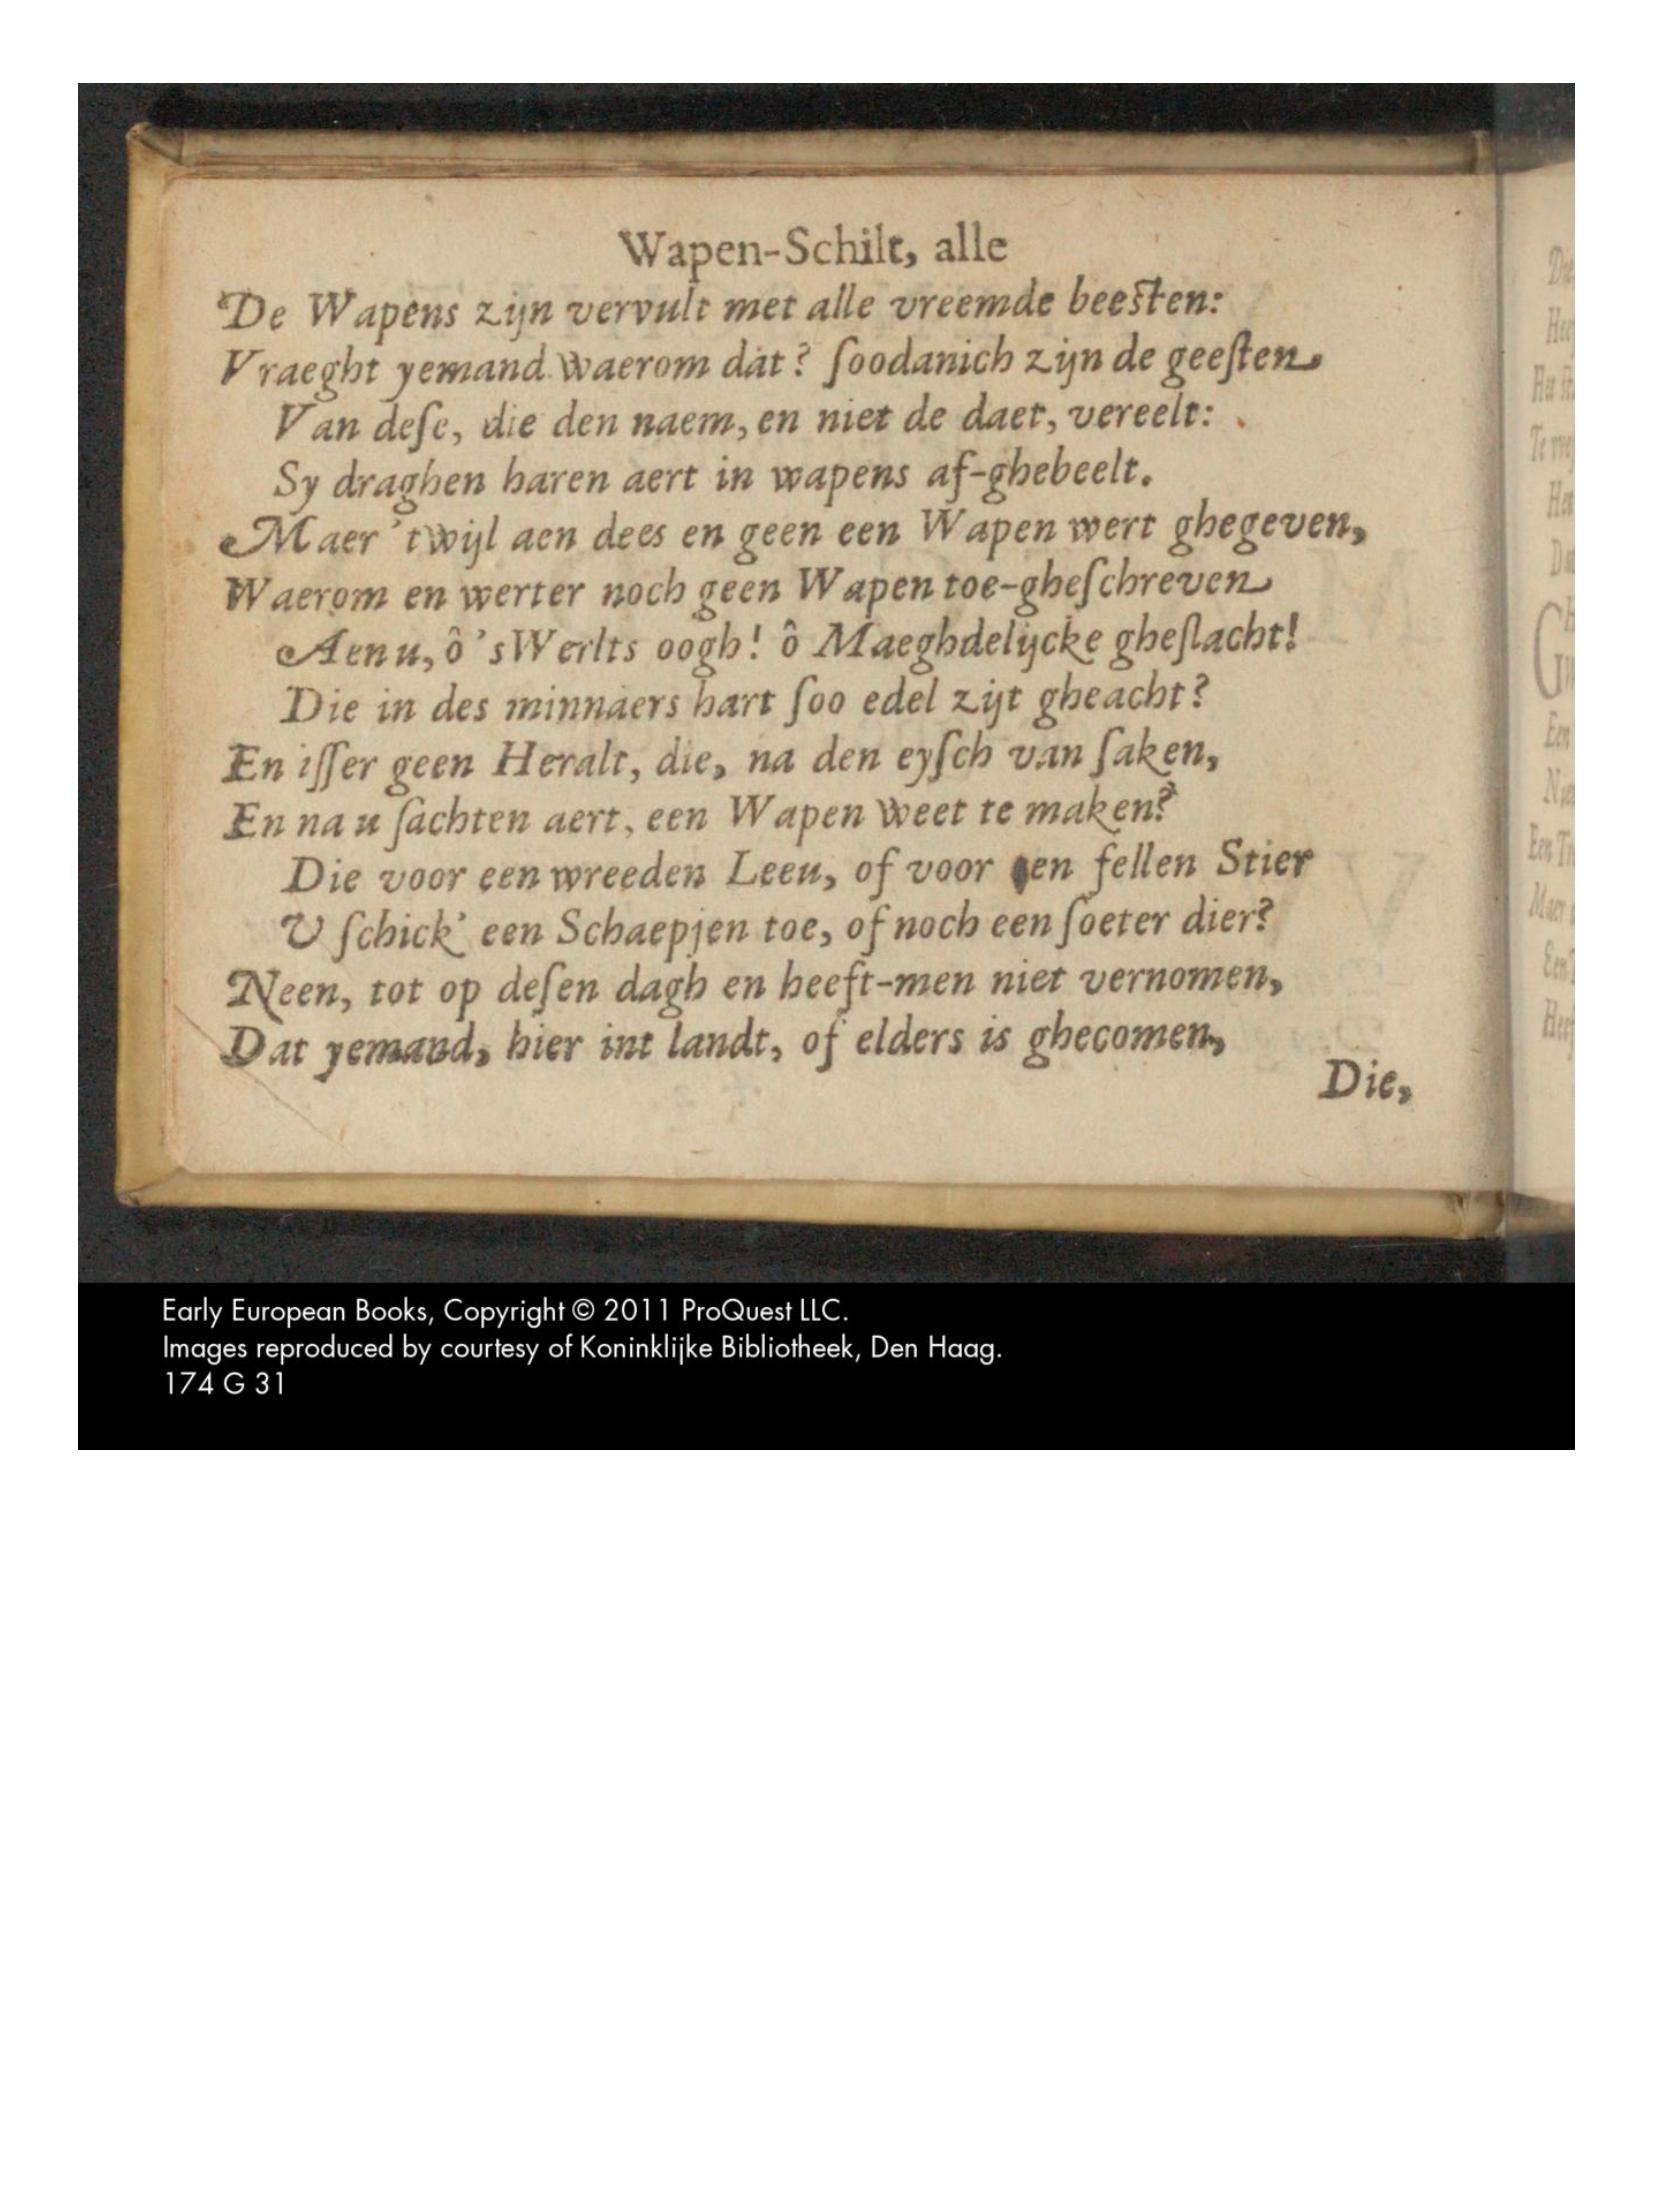 Wapen-Schilt, alle
De Wapens zijn vervult met alle vreemde beeſten:
Vraeght yemand waerom dat? ſoodanich zijn de geeſten
Van deſe, die den naem, en niet de daet, vereelt:
Sy draghen haren aert in wapens af-ghebeelt.
Maer 't wijl aen dees en geen een Wapen wert ghegeven,
Waerom en werter noch geen Wapen toe-gheſchreven
Aen u, ô 's Werlts oogh! ô Maeghdelijcke gheſlacht!
Die in des minnaers hart ſoo edel zijt gheacht?
En iſſer geen Heralt, die, na den eyſch van ſaken,
En na u ſachten aert, een Wapen weet te maken?
Die voor een wreeden Leeu, of voor een fellen Stier
U ſchick' een Schaepjen toe, of noch een ſoeter dier?
Neen, tot op deſen dagh en heeft-men niet vernomen,
Dat yemand, hier int landt, of elders is ghecomen,
Die,
Early European Books, Copyright © 2011 ProQuest LLC.
Images reproduced by courtesy of Koninklijke Bibliotheek, Den Haag.
174 G 31